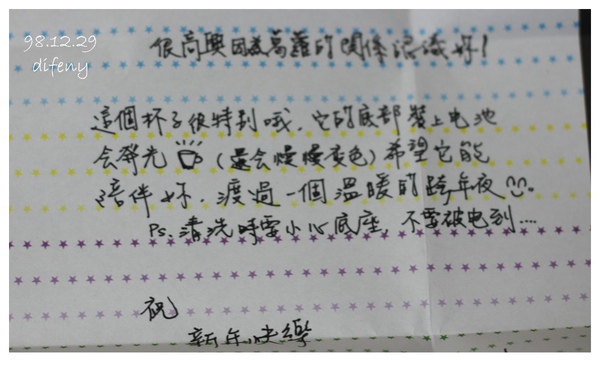 98.12.29
difeny
很高興因為蔦蘿的關係認識妳！
這個杯子很特別哦，它的底部裝上电池
会發光（還会慢慢变色）希望它能
陪伴妳，渡過一個溫暖的跨年夜
Ps. 清洗時要小心底座，不要被电到....
祝
新年快樂